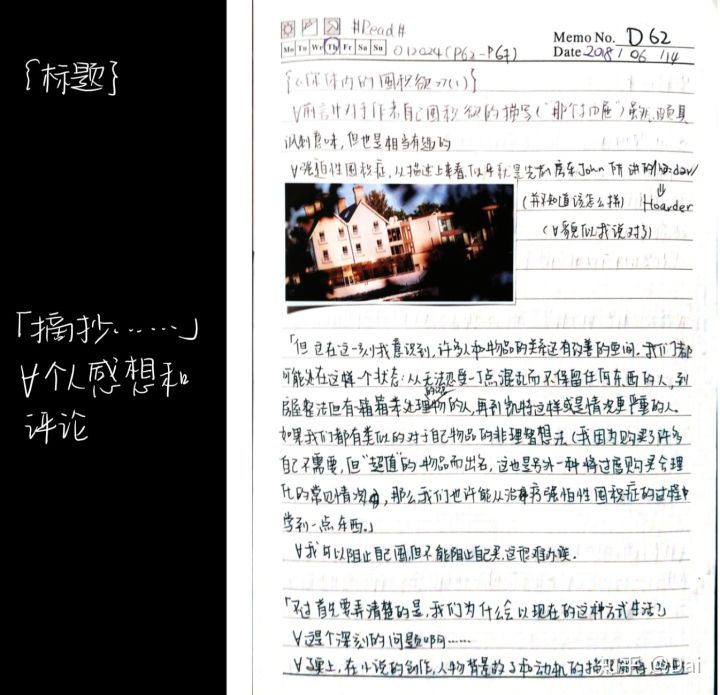 {标题}
「摘抄……」
∀个人感想和
评论
#Read#
Memo No. D 62
Mo Tu We Th Fr Sa Su
Date 2018 / 06 / 14
012024(P62-P67)
体内的囤积欲
∀前言中对于作者自己囤积欲的描写("那个抽屉")虽然颇具
讽刺意味,但也是相当有趣的
∀强迫性囤积症,从描述上来看,似乎就是 John 所讲的
(并不知道该怎么拼) Hoarder
(∀貌似我说对了)
「但也在这一刻我意识到,许多人和物品的关系还有改善的空间。我们都
可能处在这样一个状态:从无法忍受一丁点混乱而不保留任何东西的人,到
整洁但有箱箱未处理的物的人,再到凯特这样或是情况更严重的人。
如果我们都有类似的对于自己物品的非理智想法(我因为购买了许多
自己不需要,但"超值"的物品而出名,这也是另外一种将过度购买合理
化的常见情况),那么我们也许能从治疗强迫性囤积症的过程中
学到一点东西。」
∀我可以阻止自己囤,但不能阻止自己买,这很难办诶。
「不过首先要弄清楚的是,我们为什么会以现在的这种方式生活?」
∀这个深刻的问题啊……
∀事实上,在小说的创作,人物背景故事和动机的描
知乎 @Dai